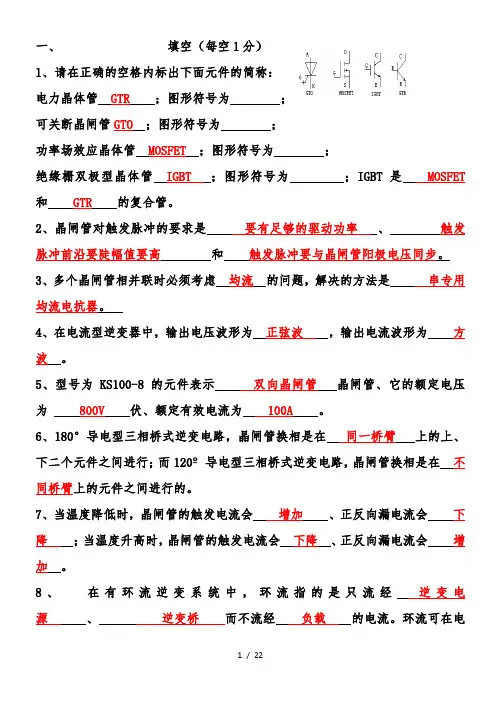 一、 填空（每空1分）
A D C C
G G G B
K S E E
GTO MOSFET IGBT GTR
1、请在正确的空格内标出下面元件的简称：
电力晶体管 GTR ；图形符号为 ；
可关断晶闸管GTO ；图形符号为 ；
功率场效应晶体管 MOSFET ；图形符号为 ；
绝缘栅双极型晶体管 IGBT ；图形符号为 ；IGBT 是 MOSFET
和 GTR 的复合管。
2、晶闸管对触发脉冲的要求是 要有足够的驱动功率 、 触发
脉冲前沿要陡幅值要高 和 触发脉冲要与晶闸管阳极电压同步。
3、多个晶闸管相并联时必须考虑 均流 的问题，解决的方法是 串专用
均流电抗器。
4、在电流型逆变器中，输出电压波形为 正弦波 ，输出电流波形为 方
波 。
5、型号为 KS100-8 的元件表示 双向晶闸管 晶闸管、它的额定电压
为 800V 伏、额定有效电流为 100A 。
6、180°导电型三相桥式逆变电路，晶闸管换相是在 同一桥臂 上的上、
下二个元件之间进行；而120º 导电型三相桥式逆变电路，晶闸管换相是在 不
同桥臂上的元件之间进行的。
7、当温度降低时，晶闸管的触发电流会 增加 、正反向漏电流会 下
降 ；当温度升高时，晶闸管的触发电流会 下降 、正反向漏电流会 增
加 。
8、 在有环流逆变系统中，环流指的是只流经 逆变电
源 、 逆变桥 而不流经 负载 的电流。环流可在电
1 / 22